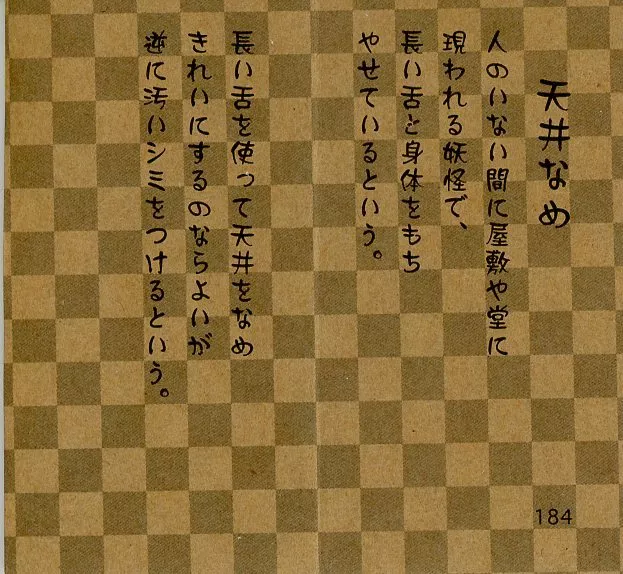 天井なめ
人のいない間に屋敷や堂に
現われる妖怪で、
長い舌と身体をもち
やせているという。
長い舌を使って天井をなめ
きれいにするのならよいが
逆に汚いシミをつけるという。
184